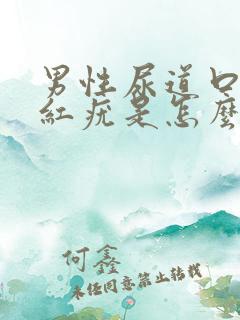 男性尿道口
紅疣是怎麼
何鑫
未经同意禁止转载